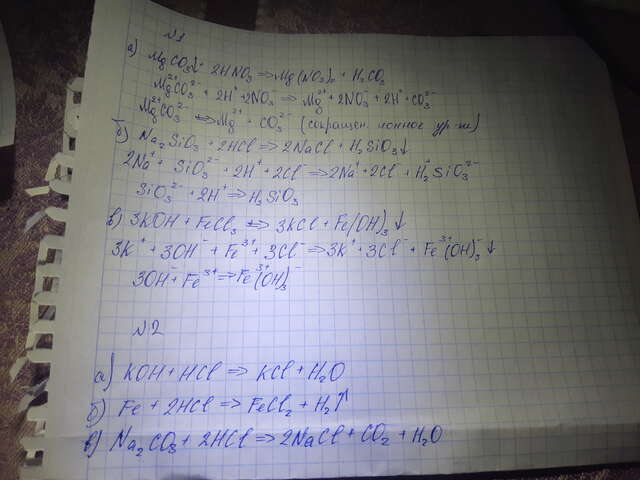 №1
а) MgCO₃↓ + 2HNO₃ ⇒ Mg(NO₃)₂ + H₂CO₃
Mg²⁺CO₃²⁻ + 2H⁺ + 2NO₃⁻ ⇒ Mg²⁺ + 2NO₃⁻ + 2H⁺ + CO₃²⁻
Mg²⁺CO₃²⁻ ⇔ Mg²⁺ + CO₃²⁻ (сокращен. ионное ур-ие)
б) Na₂SiO₃ + 2HCl ⇒ 2NaCl + H₂SiO₃↓
2Na⁺ + SiO₃²⁻ + 2H⁺ + 2Cl⁻ ⇒ 2Na⁺ + 2Cl⁻ + H₂⁺SiO₃²⁻
SiO₃²⁻ + 2H⁺ ⇒ H₂SiO₃
в) 3KOH + FeCl₃ ⇔ 3KCl + Fe(OH)₃↓
3K⁺ + 3OH⁻ + Fe³⁺ + 3Cl⁻ ⇒ 3K⁺ + 3Cl⁻ + Fe³⁺(OH)₃⁻↓
3OH⁻ + Fe³⁺ ⇒ Fe³⁺(OH)₃⁻
№2
а) KOH + HCl ⇒ KCl + H₂O
б) Fe + 2HCl ⇒ FeCl₂ + H₂↑
в) Na₂CO₃ + 2HCl ⇒ 2NaCl + CO₂ + H₂O